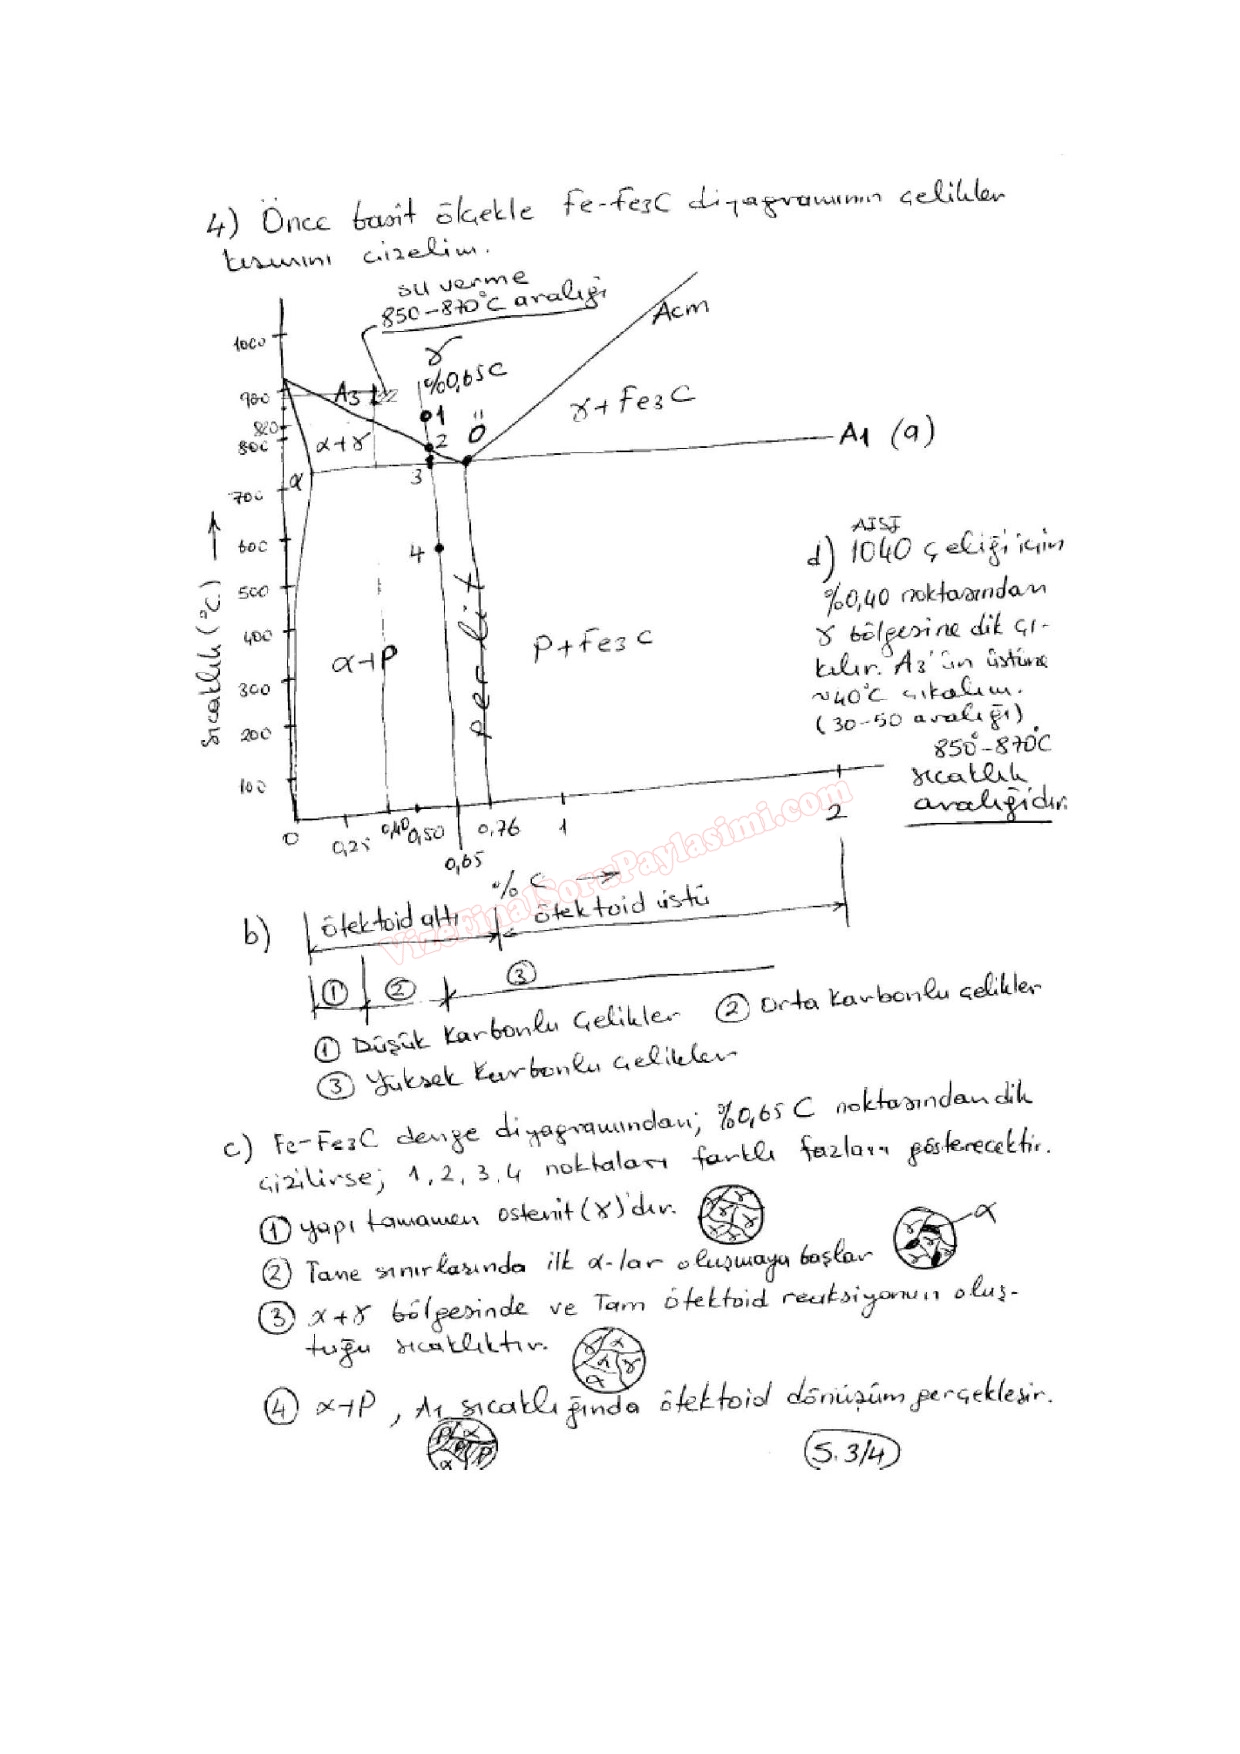 4) Önce basit ölçekle Fe-Fe3C diyagramının çelikler
kısmını çizelim.
su verme
850-870°C aralığı
Acm
1000
γ
%0,65C
900
A3
γ+Fe3C
1
Ö
820
800
α+γ
2
A1 (a)
3
α
700
600
4
500
400
300
200
100
Sıcaklık (°C) →
α+P
perlit
P+Fe3C
d) AISI
1040 çeliği için
%0,40 noktasından
γ bölgesine dik çı-
kılır. A3'ün üstüne
~40°C çıkalım.
(30-50 aralığı)
850°-870°C
sıcaklık
aralığıdır.
0
0,25
0,40
0,50
0,65
0,76
1
2
% C →
VizeFinalSoruPaylasimi.com
b) ötektoid altı
ötektoid üstü
① ② ③
① Düşük Karbonlu Çelikler ② Orta Karbonlu çelikler
③ Yüksek Karbonlu çelikler
c) Fe-Fe3C denge diyagramından; %0,65 C noktasından dik
çizilirse; 1,2,3,4 noktaları farklı fazları gösterecektir.
① yapı tamamen ostenit (γ)'dır.
② Tane sınırlarında ilk α-lar oluşmaya başlar
α
③ α+γ bölgesinde ve Tam ötektoid reaksiyonun oluş-
tuğu sıcaklıktır.
④ α+P, A1 sıcaklığında ötektoid dönüşüm gerçekleşir.
S.3/4